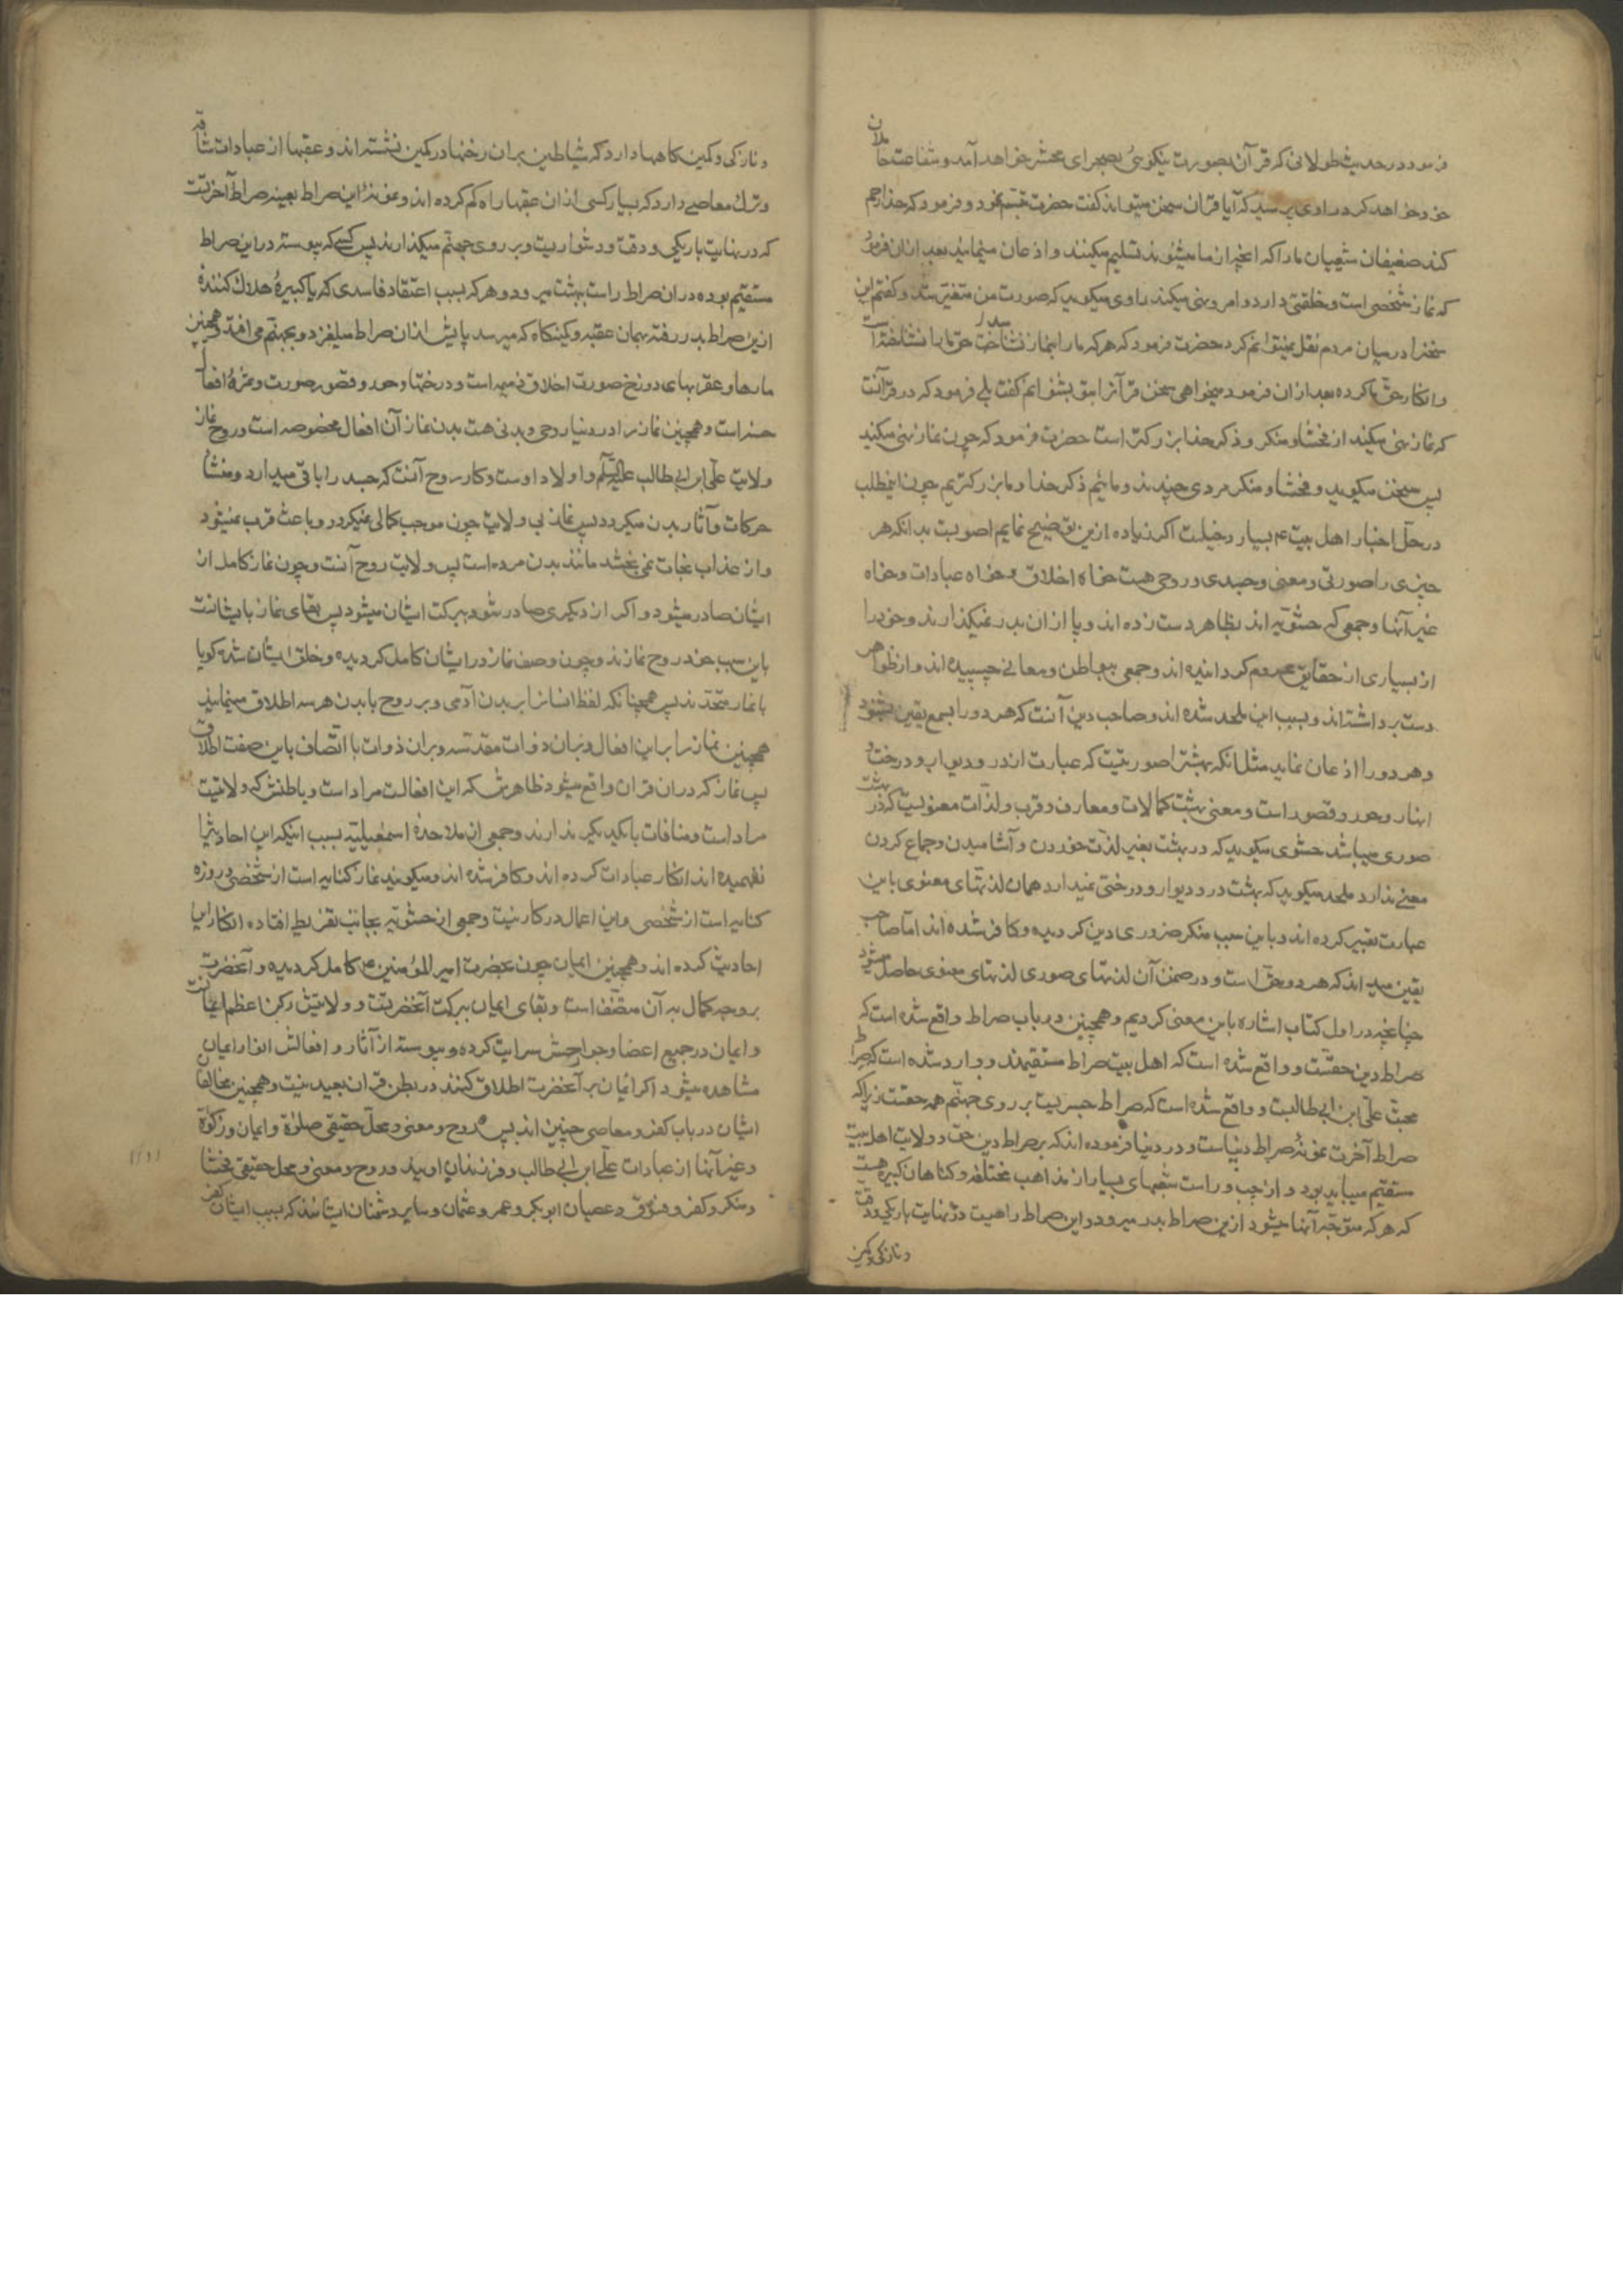 فرمود در حدیث طولانی که قرآن بصورت نیکویی بصحرای محشر خواهد آمد و شفاعت حاملان
خود خواهد کرد راوی پرسید که آیا قران سخن میتواند گفت حضرت تبسم نمود و فرمود که خدا رحم
کند ضعیفان شیعیان ما را که آنچه از ما میشنوند تسلیم میکنند و اذعان مینمایند بعد ازان فرمود
که نماز شخصی است و خلقتی دارد و امر و نهی میکند راوی میکوید که صورت من متغیر شد و کفتم این
سخنرا در میان مردم نقل نمیتوانم کرد حضرت فرمود که هر که ما را بنماز نشناخت حق ما را نشناخته است
و انکار حق ما کرده بعد ازان فرمود میخواهی سخن قرآنرا بتو بشنوانم کفت بلی فرمود که در قرآنست
که نماز نهی میکند از فحشا و منکر و ذکر خدا بزرکتر است حضرت فرمود که چون نماز نهی میکند
پس سخن میکوید و فحشا و منکر مردی چندند و مائیم ذکر خدا و ما بزرکتریم چون اینمطلب
در حل اخبار اهل بیت ۴ بسیار دخیلست اکر زیاده ازین توضیح نمایم اصوبست بدانکه هر
چیزی را صورتی و معنی و جسدی و روحی هست خواه اخلاق و خواه عبادات و خواه
غیر آنها و جمعی که حشویه اند بظاهر دست زده اند و پا ازان بدر نمیکذارند و خود را
از بسیاری از حقایق محروم کردانیده اند و جمعی ببواطن و معانی چسپیده اند و از ظواهر
دست برداشته اند و بسبب این ملحد شده اند و صاحب دین آنست که هر دو را بسمع یقین بشنود
و هر دو را اذعان نماید مثل انکه بهشترا صورتیست که عبارت از در و دیوار و درخت و
انهار و حور و قصور است و معنی بهشت کمالات و معارف و قرب و لذات معنویست که در بهشت
صوری میباشد حشوی میکوید که در بهشت بغیر لذت خوردن و آشامیدن و جماع کردن
معنی ندارد ملحد میکوید که بهشت در و دیوار و درختی نمیدارد همان لذتهای معنوی باین
عبارت تعبیر کرده اند و باین سبب منکر ضروری دین کردیده و کافر شده اند اما صاحب
یقین میداند که هر دو حق است و در ضمن آن لذتهای صوری لذتهای معنوی حاصل میشود
چنانچه در اول کتاب اشاره باین معنی کردیم و همچنین در باب صراط واقع شده است که
صراط دین حقست و واقع شده است که اهل بیت صراط مستقیمند و وارد شده است که صراط
محبت علی ابن ابی طالبست و واقع شده است که صراط جسریست بر روی جهنم همه حقست زیرا که
صراط آخرت نمونهٔ صراط دنیاست و در دنیا فرموده اند که بر صراط دین حق و ولایت اهل بیت
مستقیم میباید بود و از چپ و راست شعبهای بسیار از مذاهب مختلفه و کناهان کبیره هست
که هر که متوجه آنها میشود ازین صراط بدر میرود و این صراط راهیست در نهایت باریکی و دقت
و نازکی و کمین
و نازکی و کمین کاهها دارد که شیاطین بران رخنها در کمین نشسته اند و عقبها از عبادات شاقه
و ترک معاصی دارد که بسیار کسی ازان عقبها راه کم کرده اند و نمونهٔ این صراط بعینه صراط آخرتست
که در نهایت باریکی و دقت و دشواریست و بر روی جهنم میکذارند پس کسی که پیوسته در این صراط
مستقیم بوده دران صراط راست ببهشت میرود و هر که بسبب اعتقاد فاسدی که یا کبیرهٔ هلاک کننده
ازین صراط بدر رفته بهمان عقبه و کمینکاه که میرسد پایش ازان صراط میلغزد و بجهنم می افتد و همچنین
مارها و عقربهای دوزخ صورت اخلاق ذمیمه است و درختها و حور و قصور صورت و ثمرهٔ افعال
حسنه است و همچنین نماز را در دنیا روحی و بدنی هست بدن نماز آن افعال مخصوصه است و روح نماز
ولایت علی ابن ابی طالب علیه السلام و اولاد اوست و کار روح آنست که جسد را باقی میدارد و منشأ
حرکات و آثار بدن میکردد پس نماز بی ولایت چون موجب کمالی نمیکردد و باعث قرب نمیشود
و از عذاب نجات نمی بخشد مانند بدن مرده است پس ولایت روح آنست و چون نماز کامل از
ایشان صادر میشود و اکر از دیکری صادر شود ببرکت ایشان میشود پس بقای نماز بایشانست
باین سبب خود روح نمازند و چون وصف نماز در ایشان کامل کردیده و خلق ایشان شده کویا
با نماز متحدند پس همچنانکه لفظ انسانرا بر بدن آدمی و بر روح با بدن هر سه اطلاق مینمایند
همچنین نماز را بر این افعال و بران ذوات مقدسه و بران ذوات با اتصاف باین صفت اطلاق
پس نماز که دران قران واقع میشود ظاهرش که این افعالست مراد است و باطنش که ولایتست
مراد است و منافات با یکدیکر ندارند و جمعی از ملاحدهٔ اسمعیلیه بسبب اینکه این احادیثرا
نفهمیده اند انکار عبادات کرده اند و کافر شده اند و میکویند نماز کنایه است از شخصی و روزه
کنایه است از شخصی و این اعمال در کار نیست و جمعی از حشویه بجانب تفریط افتاده انکار این
احادیث کرده اند و همچنین ایمان چون بحضرت امیر المؤمنین ۴ کامل کردیده و آنحضرت
بر وجه کمال به آن متصف است و بقای ایمان ببرکت آنحضرتست و ولایتش رکن اعظم ایمانست
و ایمان در جمیع اعضا و جوارحش سرایت کرده و پیوسته از آثار و افعالش انوار ایمان
مشاهده میشود اکر ایمان بر آنحضرت اطلاق کنند در بطن قران بعید نیست و همچنین مخالفان
ایشان در باب کفر و معاصی چنین اند پس روح و معنی و محل حقیقی صلوة و ایمان و زکوة
و غیر آنها از عبادات علی ابن ابی طالب و فرزندان اویند و روح و معنی و محل حقیقی فحشا
و منکر و کفر و فسوق و عصیان ابوبکر و عمر و عثمان و سایر دشمنان ایشانند که بسبب ایشان کفر